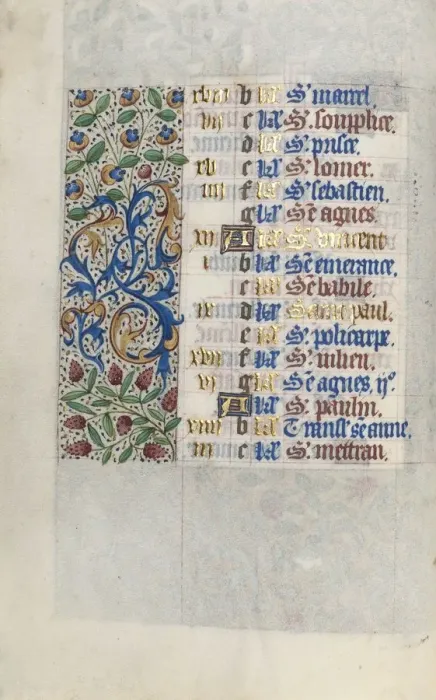 xviii b kl S' marcel.
vii c kl S' soupplice.
d kl S' prisce.
xv e kl S' lomer.
iiii f kl S' sebastien.
g kl Se agnes.
xii A kl S' vincent
i b kl Se emerance.
c kl Se babile.
ix d kl Saint paul.
e kl S' policarpe.
xvii f kl S' iulien.
vi g kl Se agnes. ii°
A kl S' paulin.
xiiii b kl Transl' se anne.
iii c kl S' mettran.